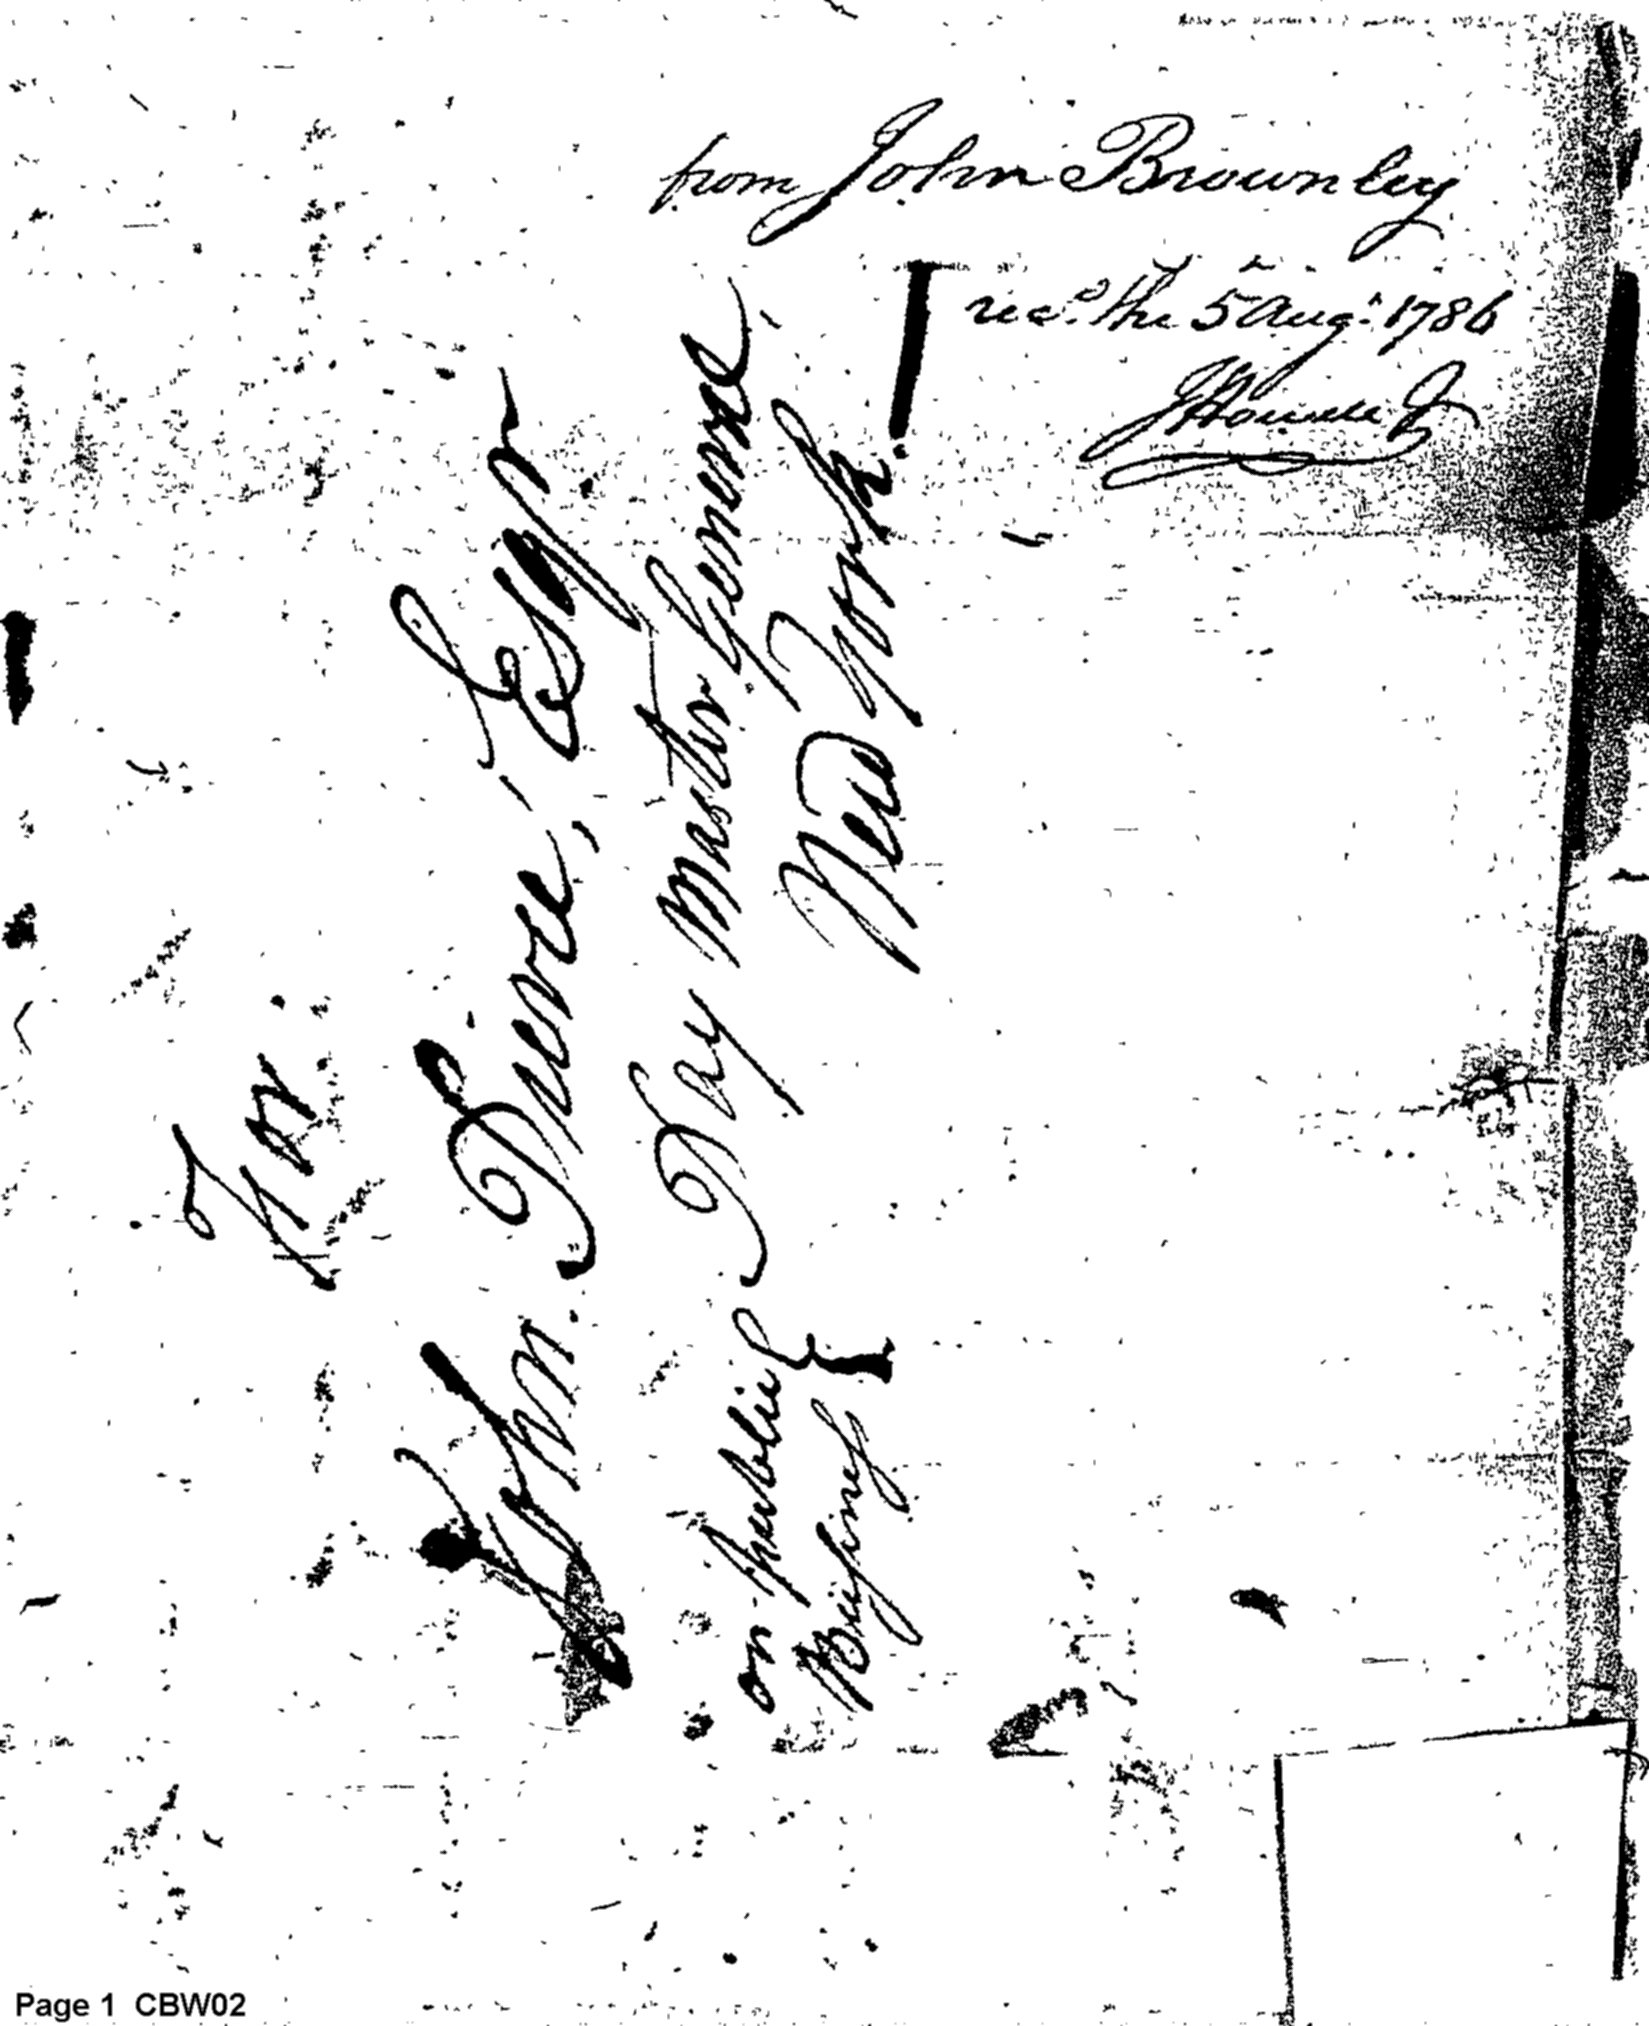 from John Brownley
recd. the 5 Augt. 1786
JHowell J
For
John Pierce, Esqr
Pay Master General,
New York.
on public
Business
Page 1 CBW02